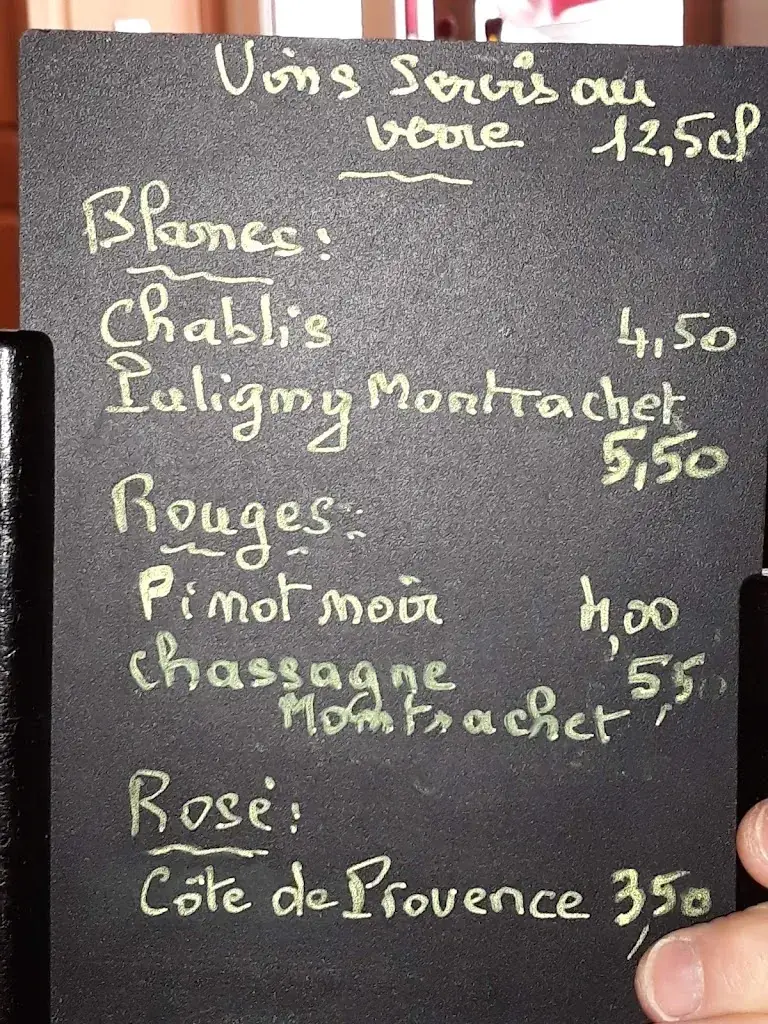 Vins Servis au
verre 12,5cl
Blancs:
Chablis 4,50
Puligny Montrachet
5,50
Rouges:
Pinot noir 4,00
Chassagne 5,50
Montrachet
Rosé:
Côte de Provence 3,50